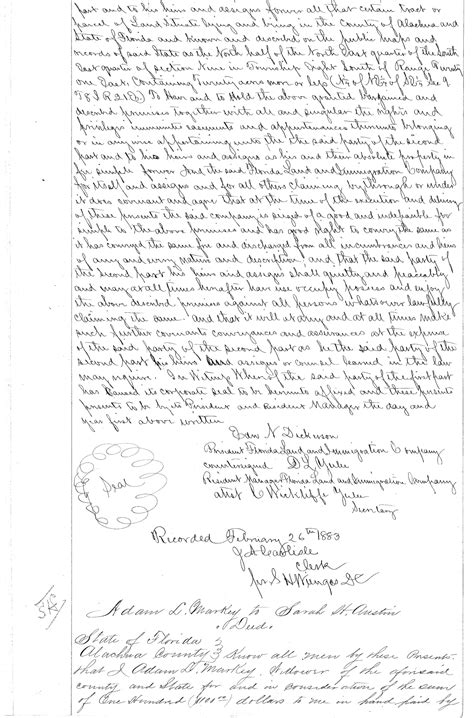 part and to his heirs and assigns forever all that certain tract or
parcel of Land Situate lying and being in the County of Alachua and
State of Florida and known and described on the public maps and
records of said State as the North half of the North East quarter of the South
East quarter of Section Nine in Township Eight South of Range Twenty
one East. Containing Twenty acres more or less (N½ of NE¼ of SE¼ Sec 9
T 8 S R 21 E) To Have and to Hold the above granted bargained and
described premises together with all and singular the rights and
privileges immunities easements and appurtenances thereunto belonging
or in any wise appertaining unto the the said party of the second
part and to his heirs and assigns as his and their absolute property in
fee simple forever And the said Florida Land and Immigration Company
for itself and assigns and for all others claiming by through or under
it does covenant and agree that at the time of the execution and delivery
of these presents the said company is seized of a good and indefeasible fee
simple to the above premises and has good right to convey the same as
it has conveyed the same free and discharged from all incumbrances and liens
of any and every nature and description and that the said party of
the second part his heirs and assigns shall quietly and peaceably
and may at all times hereafter have use occupy possess and enjoy
the above described premises against all persons whatsoever lawfully
claiming the same and that it will at any and at all times make
such further covenants conveyances and assurances at the expense
of the said party of the second part as he the said party of the
second part his heirs and assigns or counsel learned in the law
may require. In Witness Whereof the said party of the first part
has caused its corporate seal to be hereunto affixed and these presents
presents to be by its President and Resident Manager the day and
year first above written
Edw N Dickerson
President Florida Land and Immigration Company
Seal
countersigned D L Yulee
Resident Manager Florida Land and Immigration Company
attest C Wickliffe Yulee
Secretary
Recorded February 26th 1883
J A Carlisle
Clerk
per S H Wienges DC
Adam L. Markey to Sarah H. Austin
Deed.
State of Florida
Alachua County Know all men by these Presents
that I Adam L. Markey. Widower of the aforesaid
county and State for and in consideration of the sum
of One Hundred ($100 00) dollars to me in hand paid by